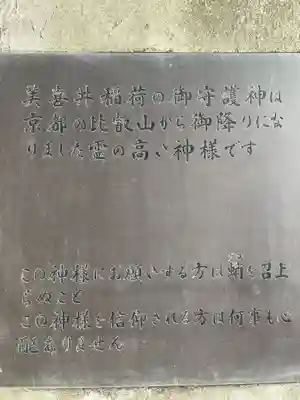 美喜井稲荷の御守護神は
京都の比叡山から御降りにな
りました霊の高い神様です
この神様にお願いする方は鮹を召上
らぬこと
この神様を信仰される方は何事も心
配ありません